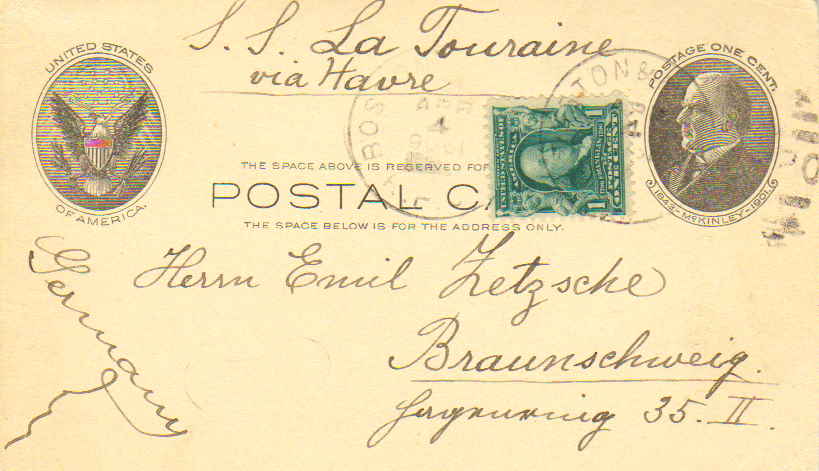 S. S. La Touraine
via Havre
UNITED STATES
OF AMERICA.
POSTAGE ONE CENT.
1843-McKINLEY-1901.
BOS
TON &
4
THE SPACE ABOVE IS RESERVED FOR
POSTAL CA
THE SPACE BELOW IS FOR THE ADDRESS ONLY.
1 1
Germany
Herrn Emil Zetzsche
Braunschweig.
Hagenring 35. II.